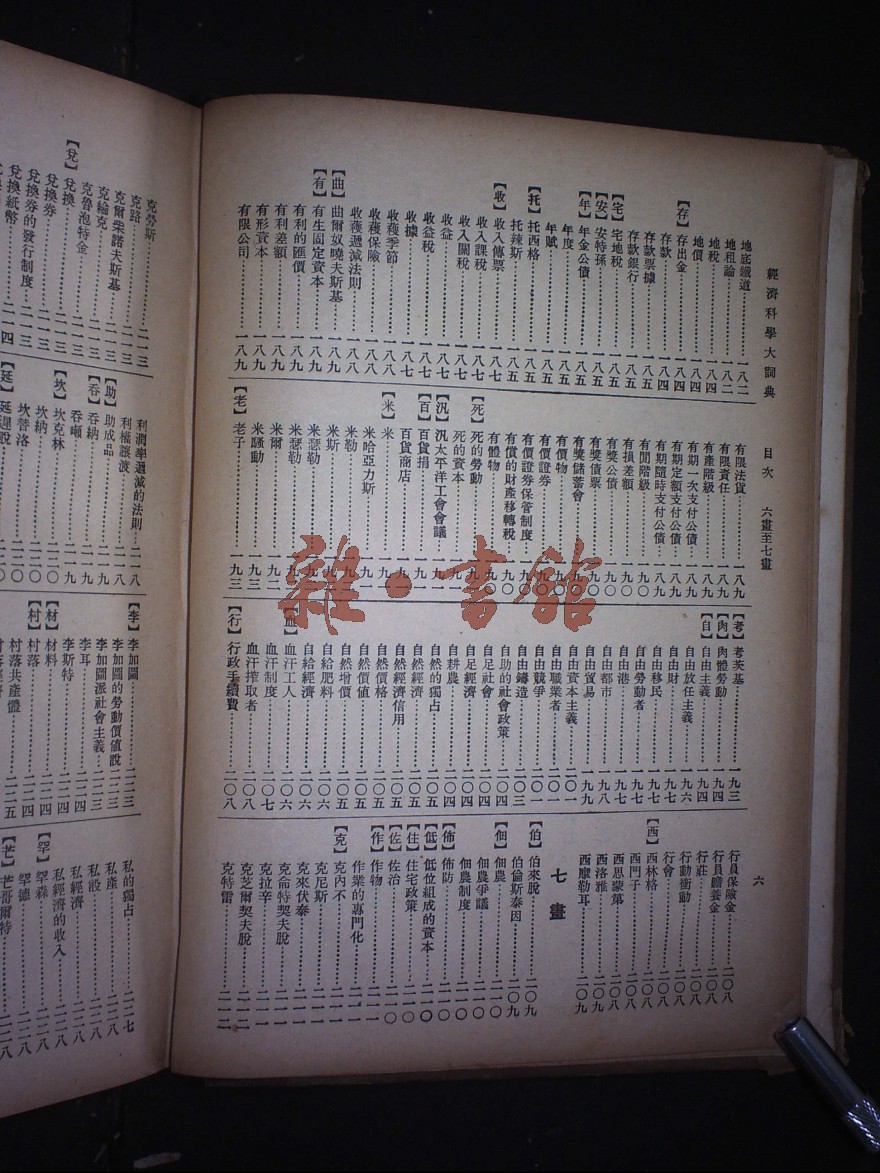 經濟科學大詞典
目次
六畫至七畫
六
地底鐵道……一八二
地租論……一八二
地稅……一八四
地價……一八四
【存】存出金……一八四
存款……一八四
存款票據……一八五
存款銀行……一八五
【宅】宅地稅……一八五
【安】安特孫……一八五
【年】年金公債……一八五
年度……一八五
年賦……一八五
【托】托西格……一八五
托辣斯……一八五
【收】收入傳票……一八七
收入課稅……一八七
收入關稅……一八七
收益……一八七
收益稅……一八七
收據……一八七
收穫季節……一八八
收穫保險……一八八
收穫遞減法則……一八八
【曲】曲爾奴嘵夫斯基……一八八
【有】有生固定資本……一八九
有利的匯價……一八九
有利差額……一八九
有形資本……一八九
有限公司……一八九
有限法貨……一八九
有限責任……一八九
有產階級……一八九
有期一次支付公債……一八九
有期定額支付公債……一八九
有期隨時支付公債……一八九
有閒階級……一九〇
有損差額……一九〇
有獎公債……一九〇
有獎債票……一九〇
有獎儲蓄會……一九〇
有價物……一九〇
有價證券……一九〇
有價證券保管制度……一九〇
有償的財產移轉稅……一九〇
有體物……一九〇
【死】死的勞動……一九一
死的資本……一九一
【汎】汎太平洋工會會議……一九一
【百】百貨捐
百貨商店
【米】米
米哈亞力斯
米勒
米斯
米瑟勒
米瑟勒
米爾……一九二
米騷動……一九三
【老】老子……一九三
【考】考茨基……一九三
【肉】肉體勞動……一九四
【自】自由主義……一九四
自由放任主義……一九六
自由財……一九七
自由移民……一九七
自由勞動者……一九七
自由港……一九七
自由都市……一九八
自由貿易……一九九
自由資本主義……二〇一
自由職業者……二〇一
自由競爭……二〇一
自由鑄造……二〇三
自助的社會政策……二〇四
自足社會……二〇四
自足經濟……二〇四
自耕農……二〇四
自然的獨占……二〇五
自然經濟……二〇五
自然經濟信用……二〇五
自然價格……二〇五
自然價值……二〇五
自然增價……二〇五
自給肥料……二〇六
自給經濟……二〇六
【血】血汗工人……二〇六
血汗制度……二〇七
血汗搾取者……二〇八
【行】行政手續費……二〇八
行員保險金……二〇八
行員贍養金……二〇八
行莊……二〇八
行動衝動……二〇八
行會……二〇八
【西】西林格……二〇八
西門子……二〇八
西思蒙第……二〇八
西洛雅……二〇九
西摩勒耳……二〇九
七畫
【伯】伯來脫……二〇九
伯倫斯泰因……二〇九
【佃】佃農……二一〇
佃農爭議……二一〇
佃農制度……二一〇
【佈】佈防……二一〇
【低】低位組成的資本……二一〇
【住】住宅政策……二一〇
【佐】佐治……二一〇
【作】作物……二一一
作業的專門化……二一一
【克】克內不……二一一
克尼斯……二一一
克來伏泰……二一一
克侖特契夫脫……二一一
克拉辛……二一一
克芝爾契夫脫……二一二
克特雷……二一二
克勞斯……二一三
克路……二一三
克爾柴諾夫斯基……二一三
克綸克……二一三
克魯泡特金……二一三
【兌】兌換……二一三
兌換券……二一三
兌換券的發行制度……二一三
兌換紙幣……二一四
利潤率遞減的法則……二一八
利權讓渡……二一八
【助】助成品……二一九
【吞】吞納……二一九
吞噸……二一九
【坎】坎克林……二二〇
坎納……二二〇
坎蒂洛……二二〇
【延】延遲說……二二〇
【李】李加圖……二二三
李加圖的勞動價值說……二二三
李加圖派社會主義……二二三
李耳……二二四
李斯特……二二四
【材】材料……二二四
【村】村落……二二四
村落共產體……二二五
私的獨占……二二七
私產……二二八
私設……二二八
私經濟……二二八
私經濟的收入……二二八
【罕】罕森……二二八
罕德……二二八
【芒】芒哥爾特……二二八
雜·書館